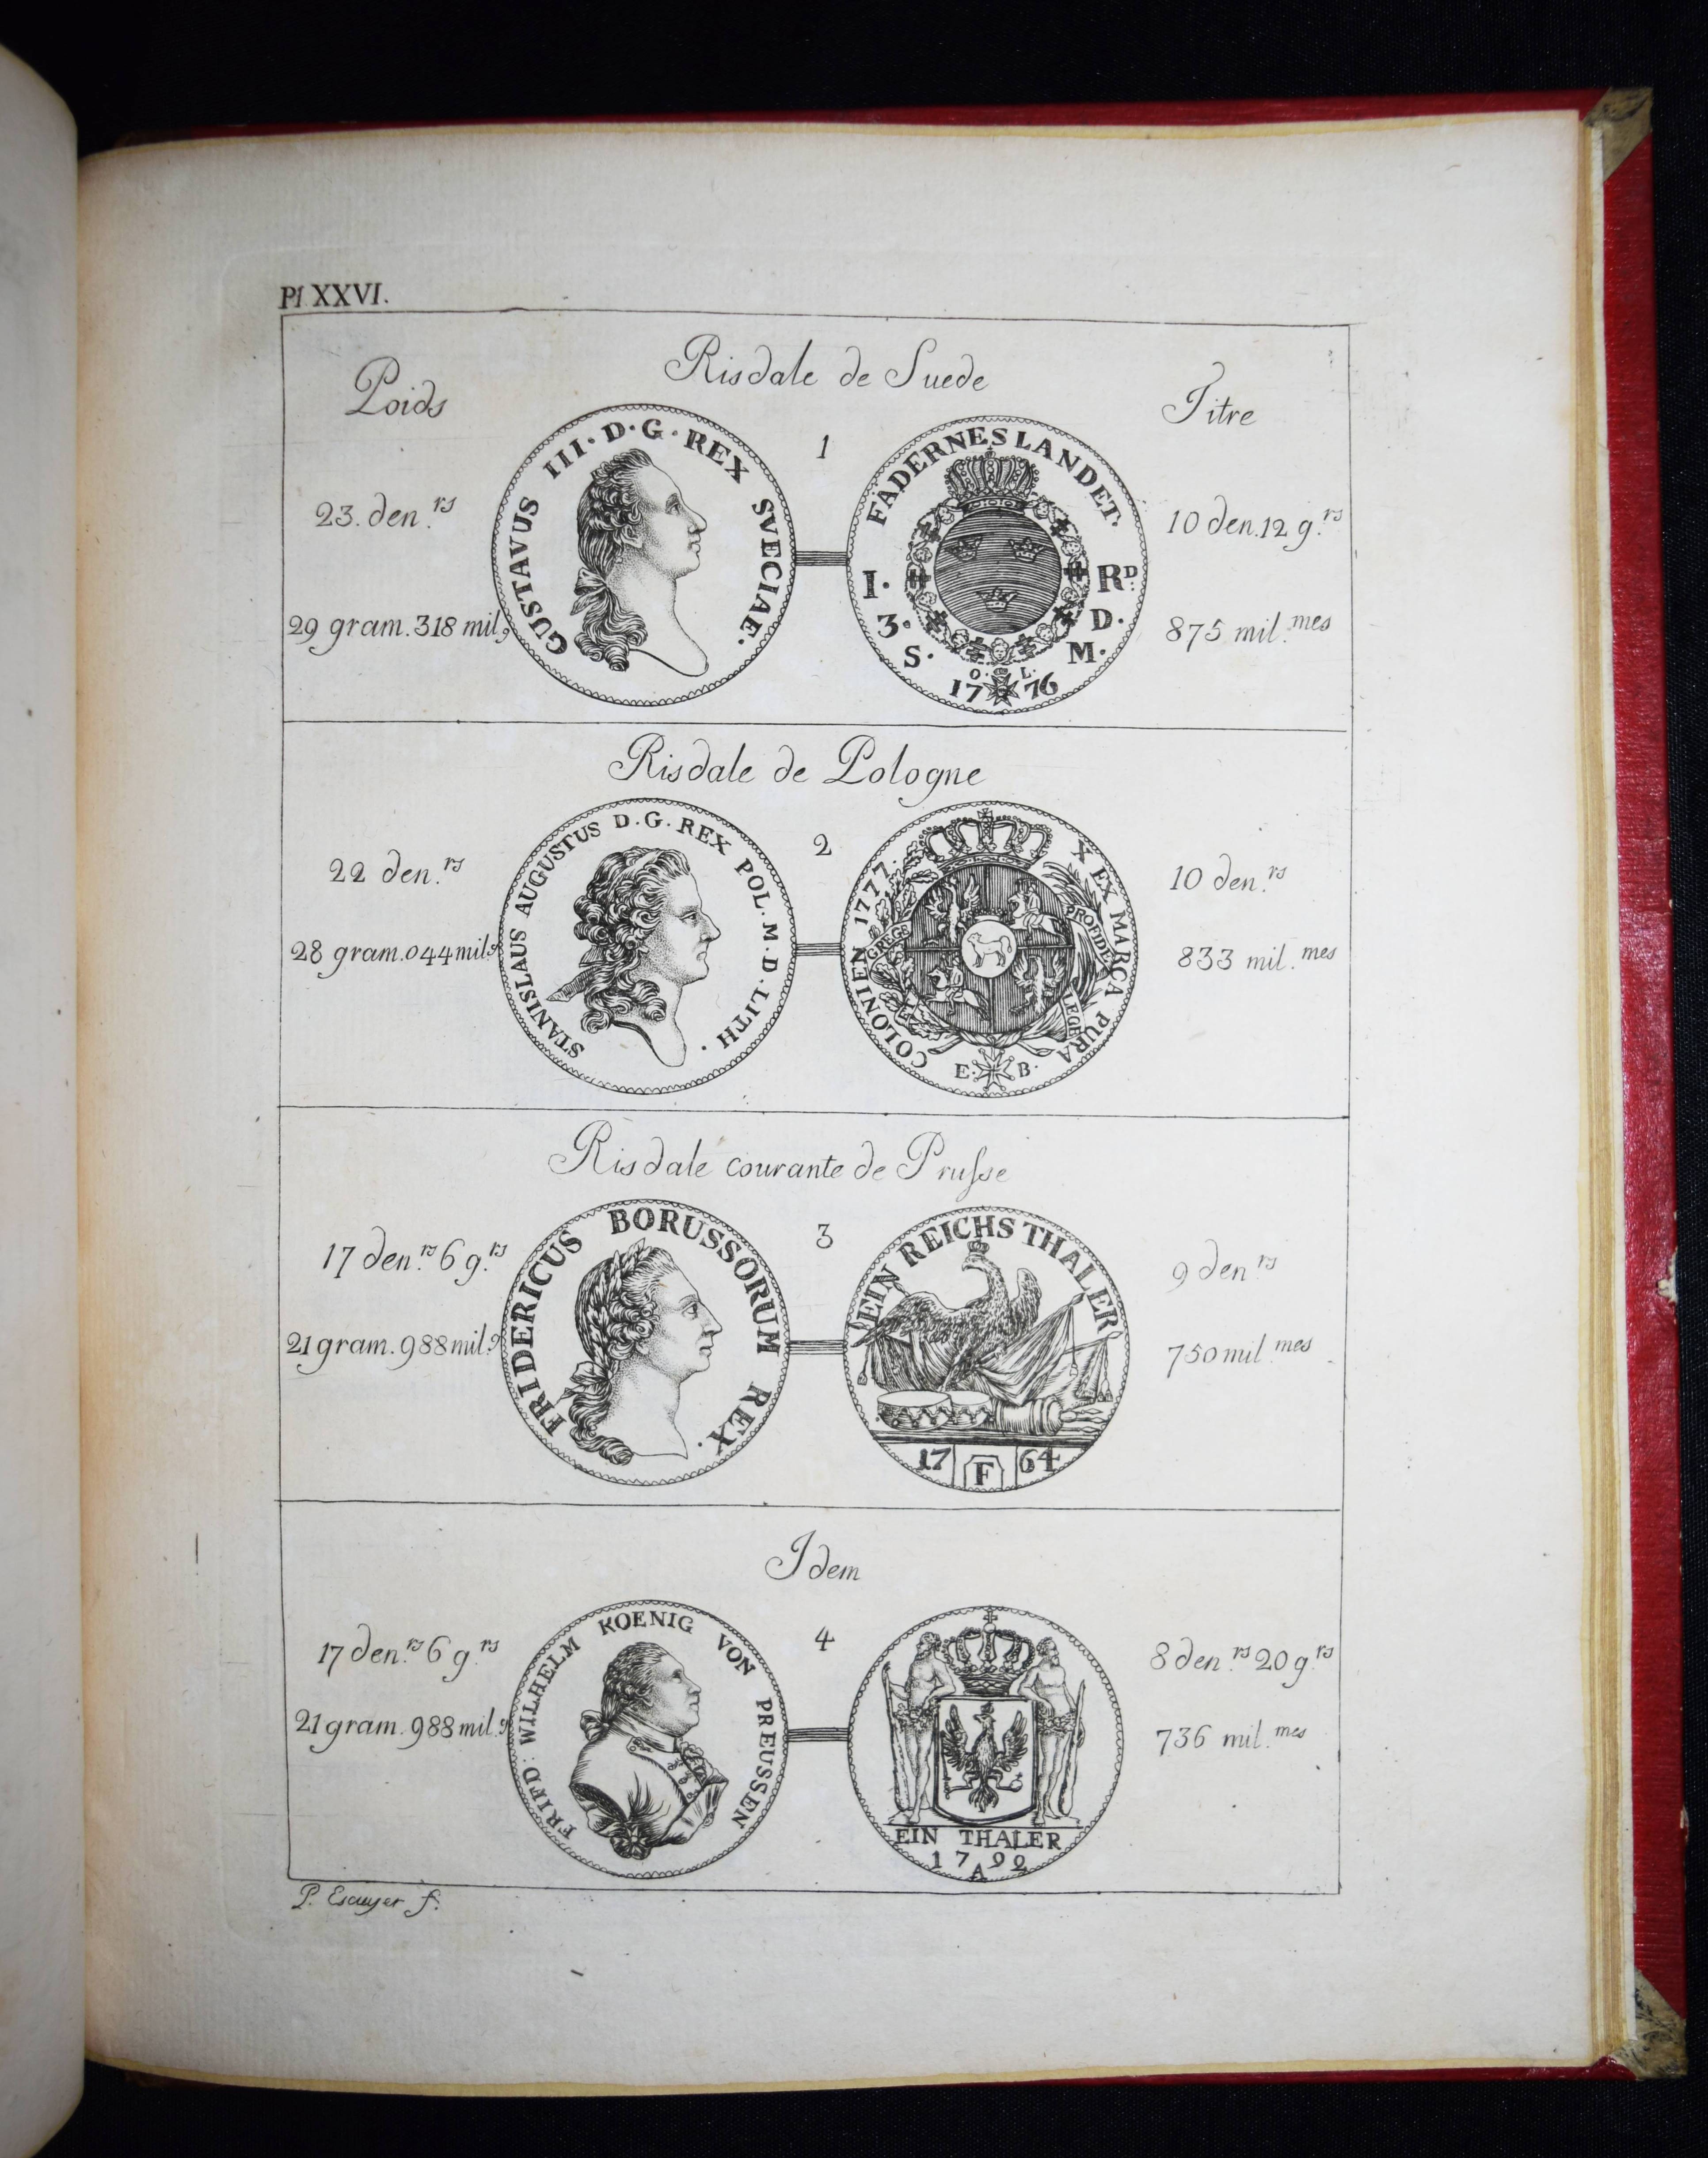 Pl XXVI.
Risdale de Suede
Poids
Titre
1
23. den.rs
10 den.12 g.rs
29 gram. 318 mil.s
875 mil.mes
GUSTAVUS III · D · G · REX SVECIAE ·
FÄDERNESLANDET.
I · RD.
3 · D ·
S · M ·
O · L ·
17 76
Risdale de Pologne
2
22 den.rs
10 den.rs
28 gram. 044 mil.s
833 mil.mes
STANISLAUS AUGUSTUS D . G . REX POL . M . D . LITH .
X EX MARCA PURA COLONIEN 1777.
PRO FIDE
GREGE
LEGE
E · B ·
Risdale courante de Prusse
3
17 den.rs 6 g.rs
9 den.rs
21 gram. 988 mil.s
750 mil.mes
FRIDERICUS BORUSSORUM REX .
EIN REICHS THALER
17 F 64
Idem
4
17 den.rs 6 g.rs
8 den.rs 20 g.rs
21 gram. 988 mil.s
736 mil.mes
FRIED: WILHELM KOENIG VON PREUSSEN
EIN THALER
1792
A
P. Escuyer f.